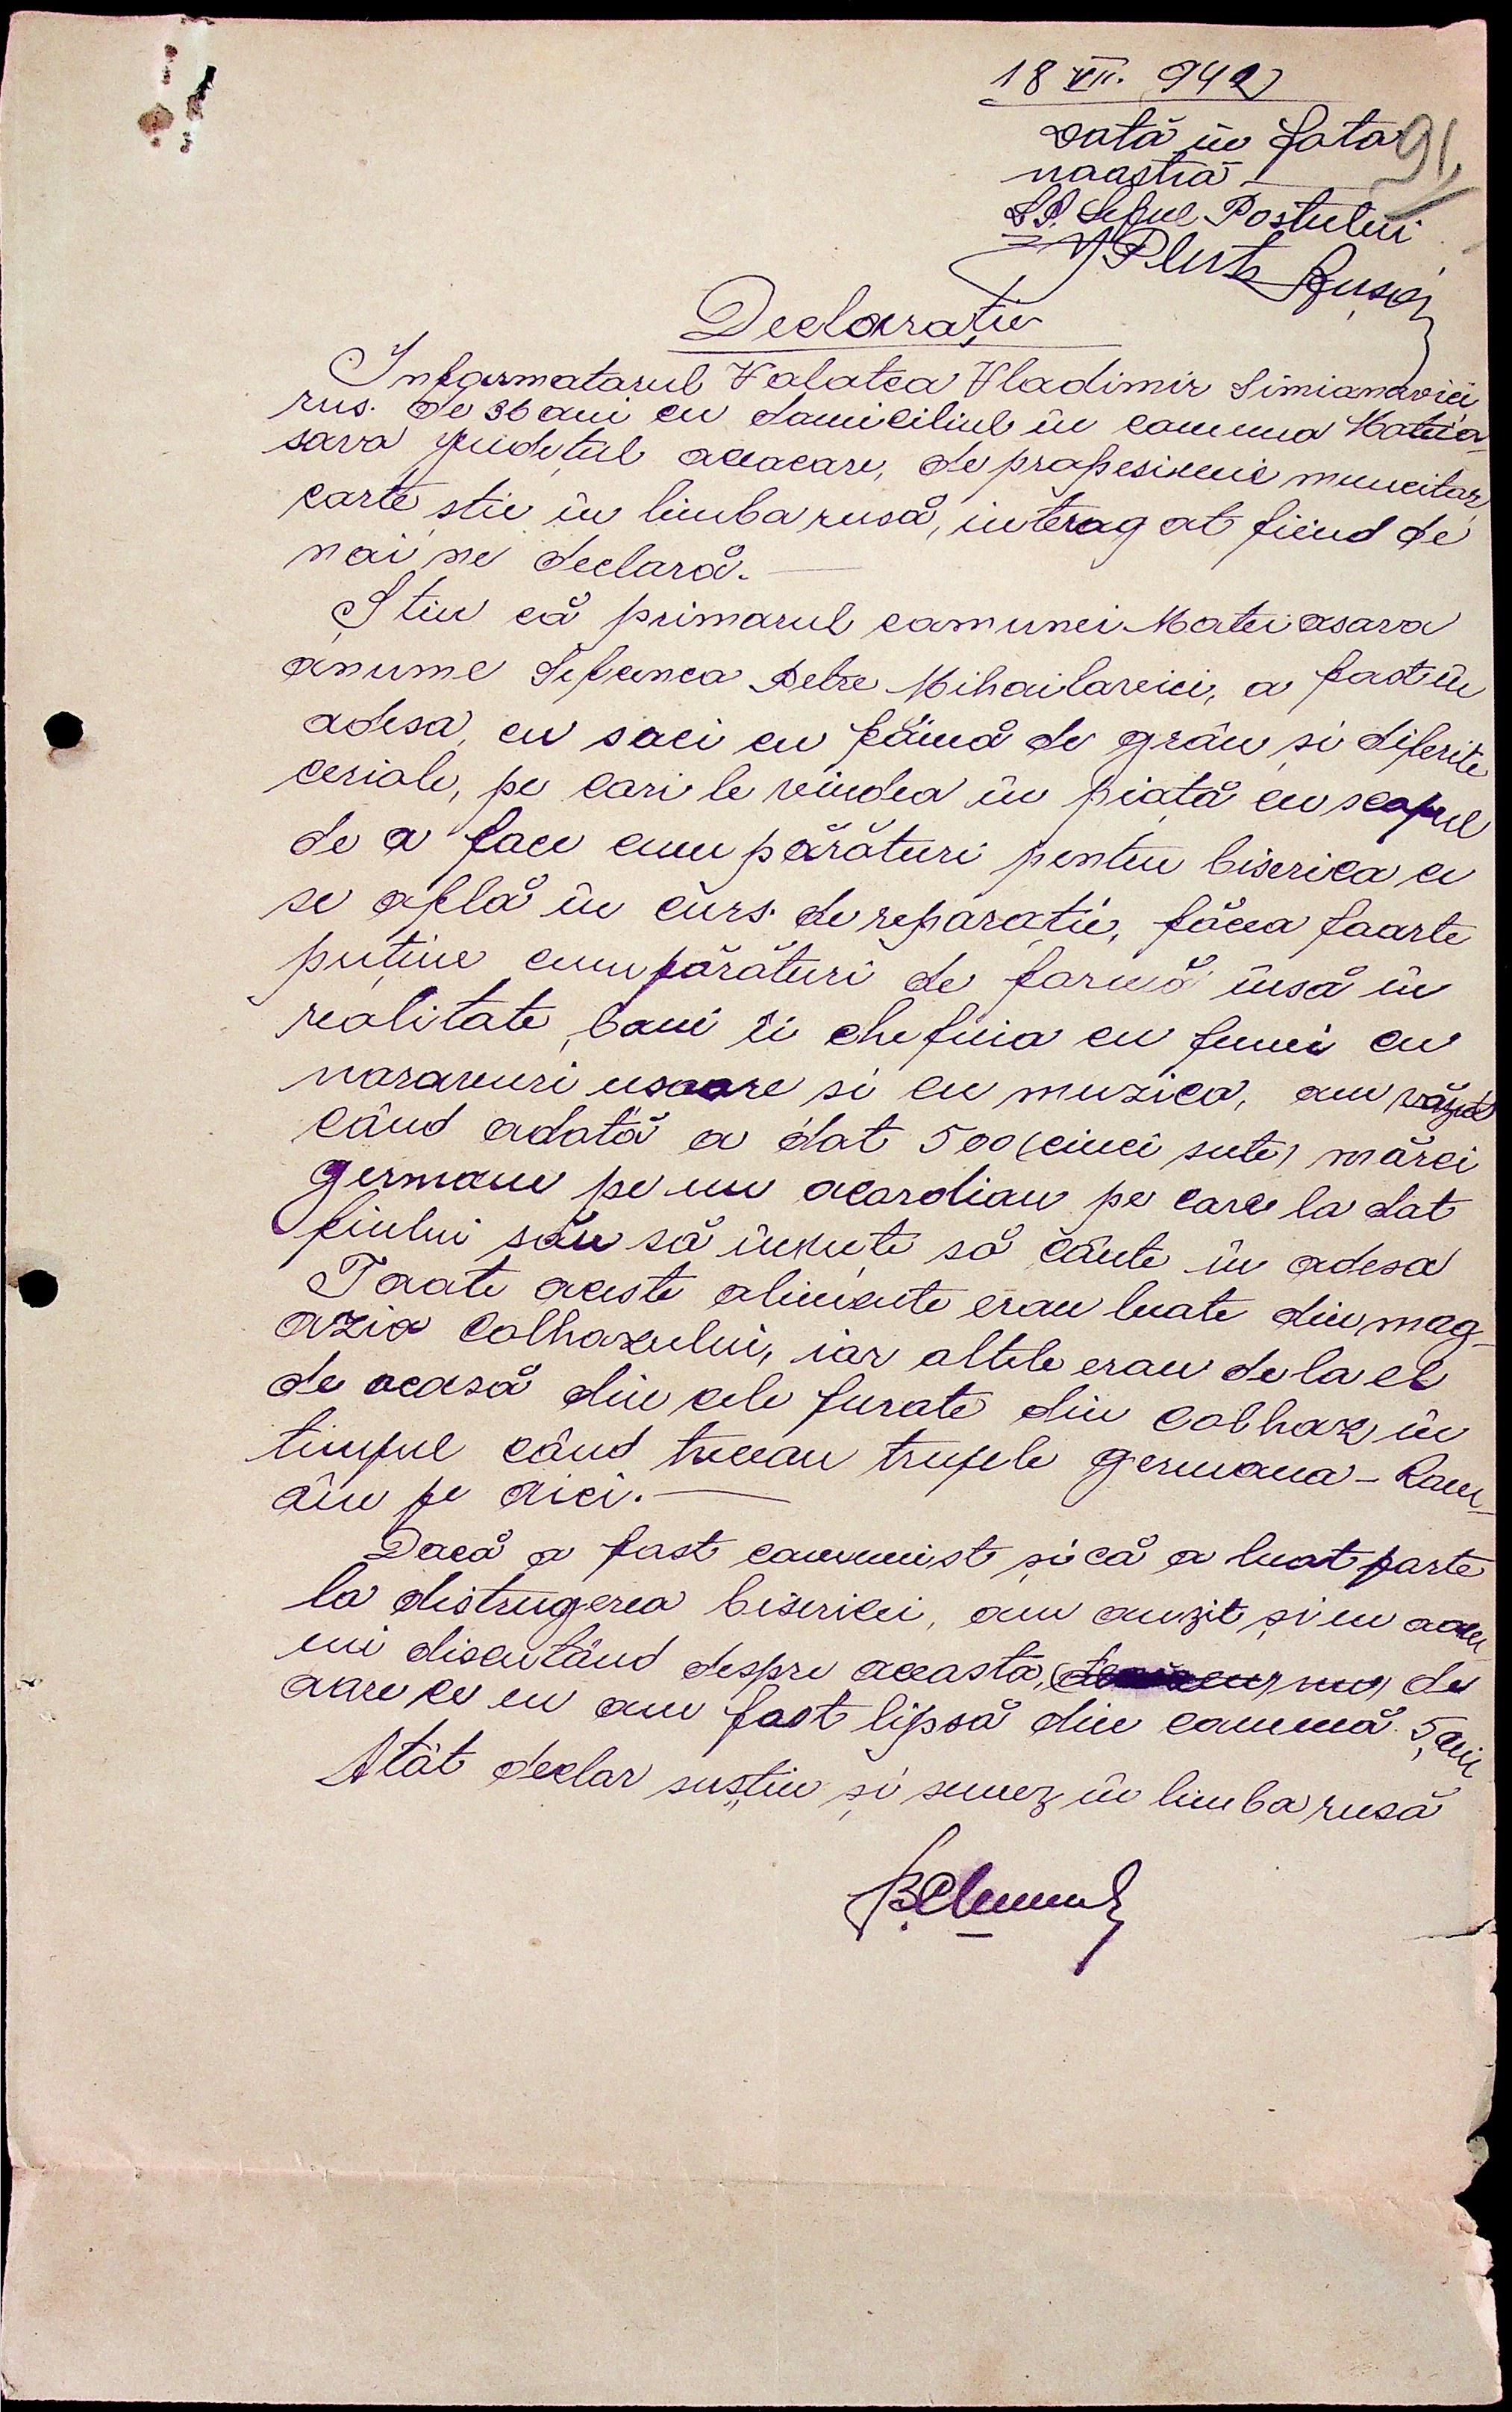 18 VII. 942
Dată în fața
noastră
91
Șeful Postului
Declarație
Informatorul Valatea Vladimir Simianovici
rus. de 36 ani cu domiciliul în comuna Mateia-
sava județul aceacare, de profesiune muncitor,
carte știe în limba rusă, interogat fiind de
noi ne declară.
Știu că primarul comunei Mateiasava
anume Petre Mihailavici, a fost în
odesa, cu saci cu făină de grâu și diferite
ceriale, pe cari le vindea în piață cu scopul
de a face cumpărături pentru biserica ce
se află în curs de reparație, făcea foarte
puține cumpărături de formă însă în
realitate bani îi chefuia cu femei cu
naravuri usoare si cu muzica, am văzut
când odată a dat 500 (cinci sute) mărci
germane pe un acordian pe care la dat
fiului său să învețe să cânte în odesa
Toate aceste alimente erau luate din mag-
azia colhozului, iar altele erau de la el
de acasă din cele furate din colhoz în
timpul când treceau trupele germana - Rom-
âne pe aici.
Dacă a fost comunist și că a luat parte
la distrugerea bisericii, am auzit și eu oam
eni discutând despre aceasta, de
oare ce eu am fost lipsă din comună 5 ani
Atât declar susțin și semez în limba rusă